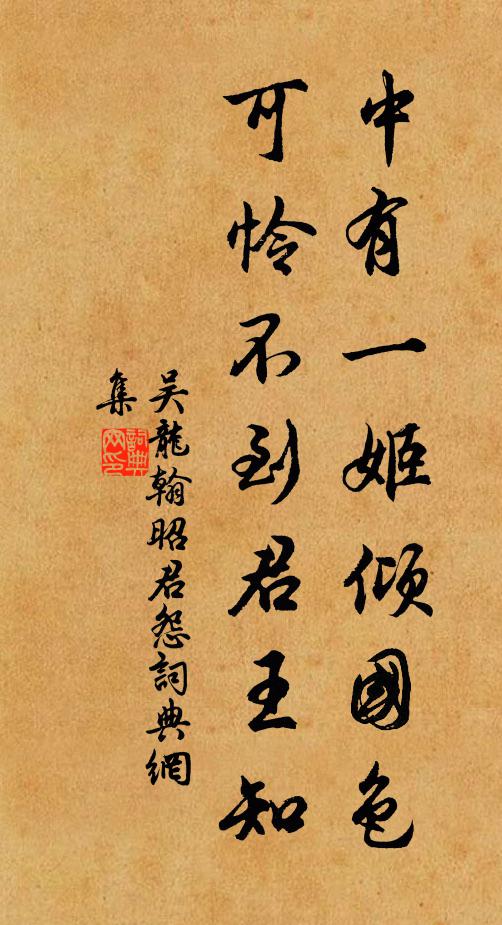 中有一姬倾國色
可怜不到君王知
吴龍翰昭君怨詞典網
集
詞典
网印